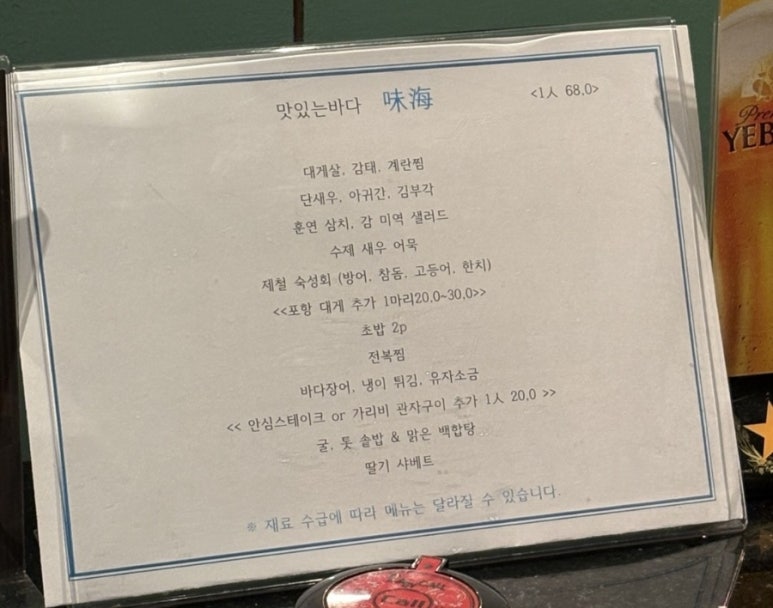 맛있는바다 味海 <1人 68.0>
대게살, 감태, 계란찜
단새우, 아귀간, 김부각
훈연 삼치, 감 미역 샐러드
수제 새우 어묵
제철 숙성회 (방어, 참돔, 고등어, 한치)
<<포항 대게 추가 1마리20.0~30.0>>
초밥 2p
전복찜
바다장어, 냉이 튀김, 유자소금
<< 안심스테이크 or 가리비 관자구이 추가 1人 20.0 >>
굴, 톳 솥밥 & 맑은 백합탕
딸기 샤베트
※ 재료 수급에 따라 메뉴는 달라질 수 있습니다.
YEB
Call